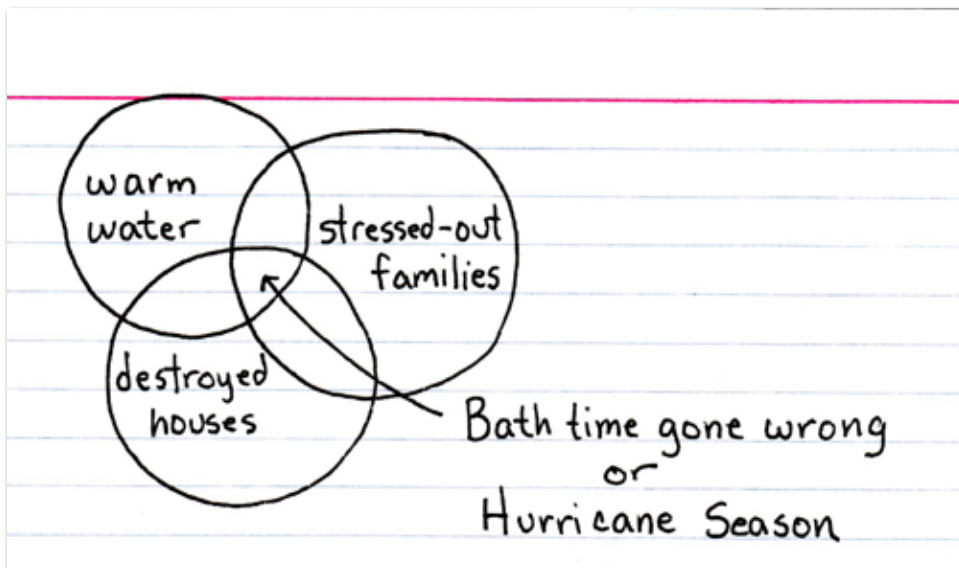 warm
water
stressed-out
families
destroyed
houses
Bath time gone wrong
or
Hurricane Season